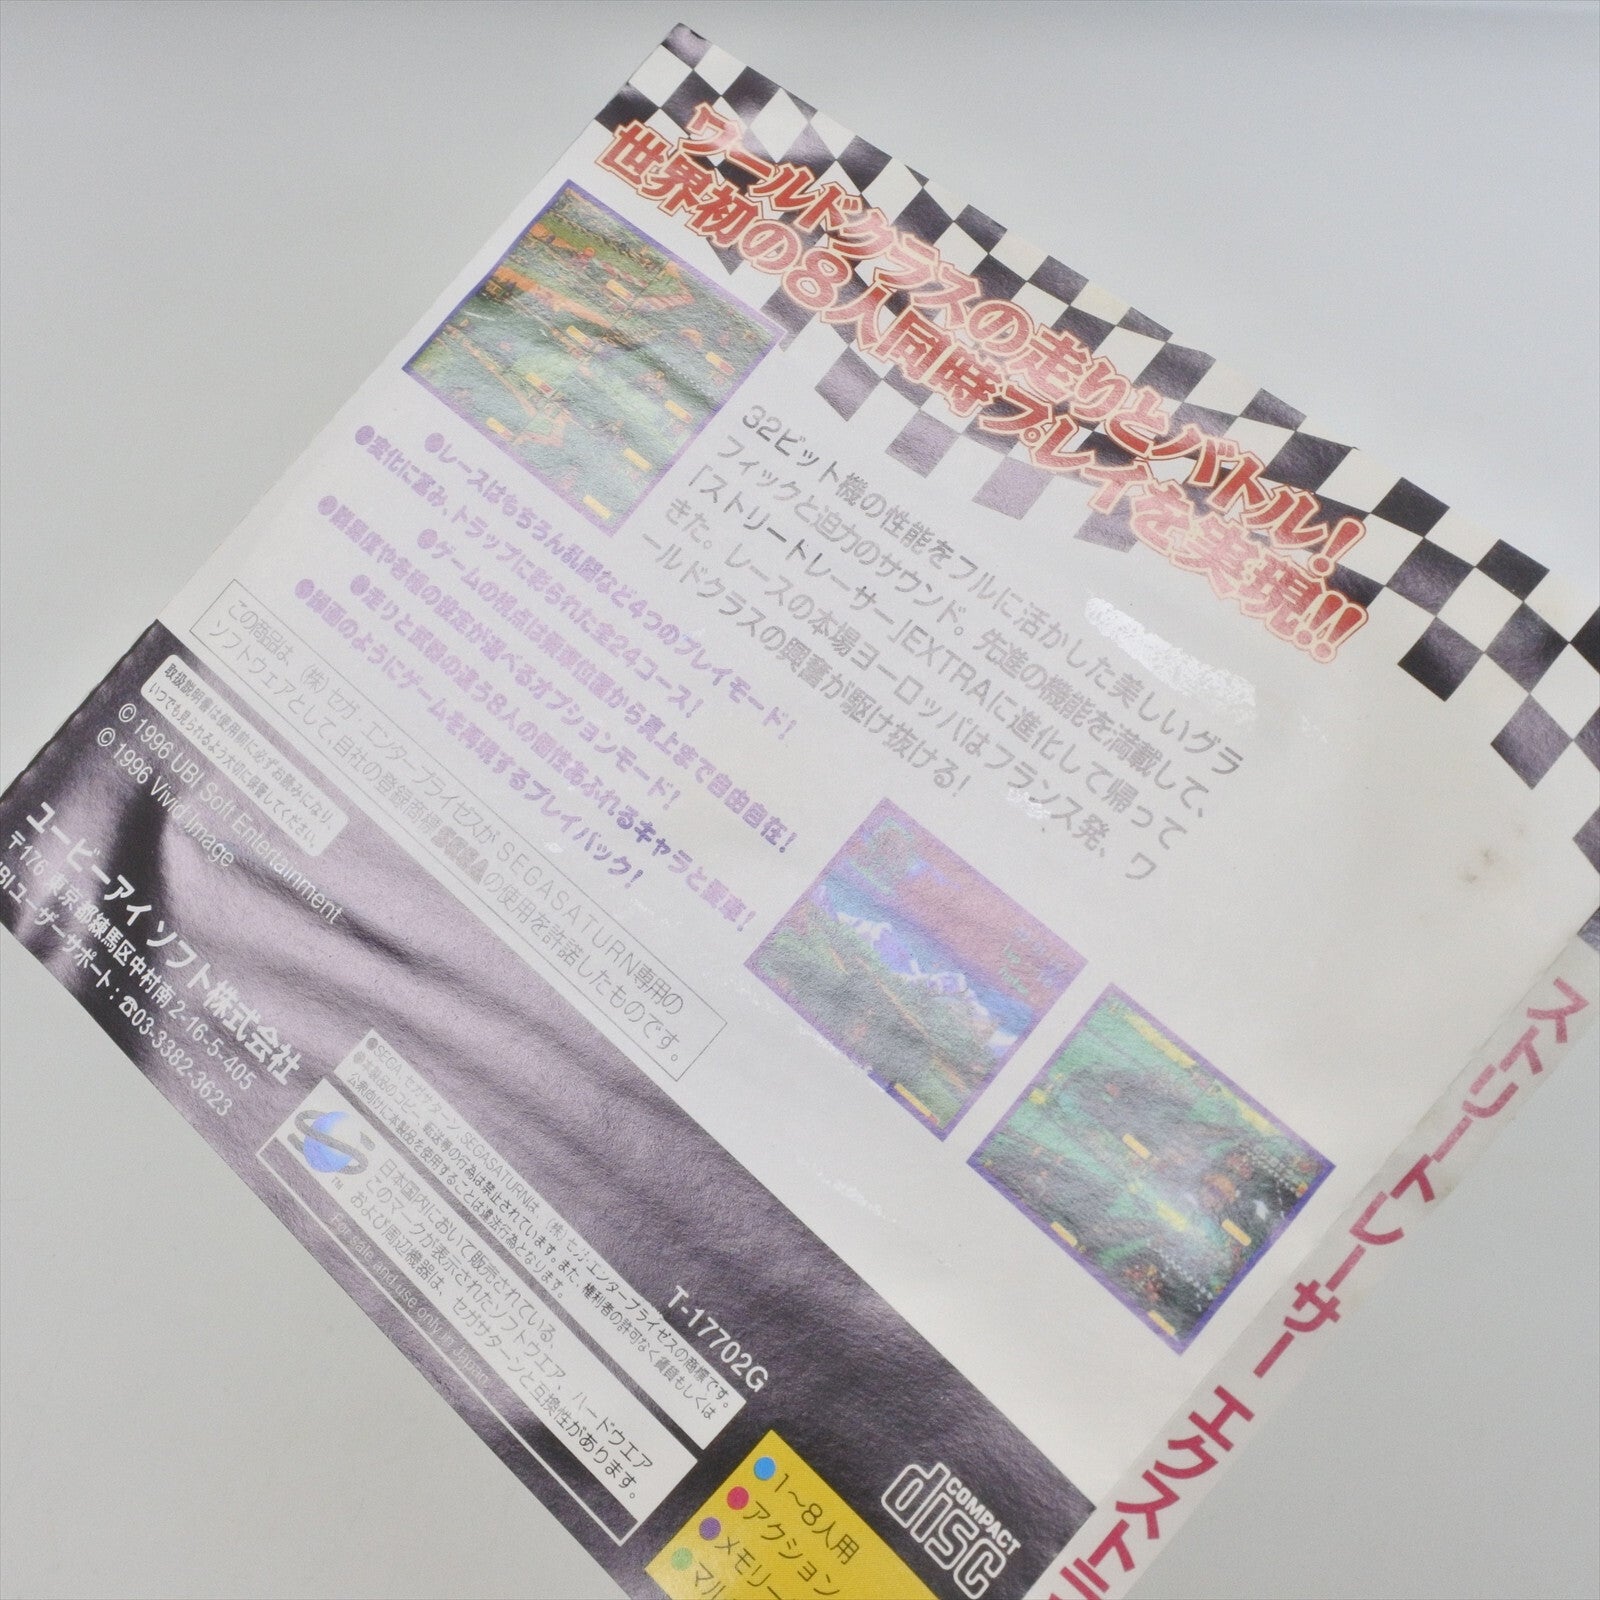 ワールドクラスの走りとバトル!
世界初の8人同時プレイを実現!!
32ビット機の性能をフルに活かした美しいグラ
フィックと迫力のサウンド。先進の機能を満載して、
「ストリートレーサー」EXTRAに進化して帰って
きた。レースの本場ヨーロッパはフランス発、ワ
ールドクラスの興奮が駆け抜ける!
●レースはもちろん乱闘など4つのプレイモード!
●変化に富み、トラップに彩られた全24コース!
●ゲームの視点は乗車位置から真上まで自由自在!
●難易度や各種の設定が選べるオプションモード!
●走りと武器の違う8人の個性あふれるキャラと愛車!
●録画のようにゲームを再現するプレイバック!
この商品は、(株)セガ・エンタープライゼスがSEGASATURN専用の
ソフトウエアとして、自社の登録商標SEGAの使用を許諾したものです。
取扱説明書は使用前に必ずお読みになり、
いつでも見られるよう大切に保管してください。
© 1996 UBI Soft Entertainment
© 1996 Vivid Image
ユービーアイ ソフト株式会社
〒176 東京都練馬区中村南2-16-5-405
UBIユーザーサポート:☎03-3382-3623
T-17702G
●SEGA、セガサターン、SEGASATURNは、(株)セガ・エンタープライゼスの商標です。
●本製品のコピー、転送等の行為は禁止されています。また、権利者の許可なく賃貸もしくは
公衆向けに本製品を使用することは違法行為となります。
TM
日本国内において販売されている、
このマークが表示されたソフトウエア、ハードウエア
および周辺機器は、セガサターンと互換性があります。
For sale and use only in Japan.
●1〜8人用
●アクション
●メモリー
●マル
COMPACT
disc
ストリートレーサー エクストラ